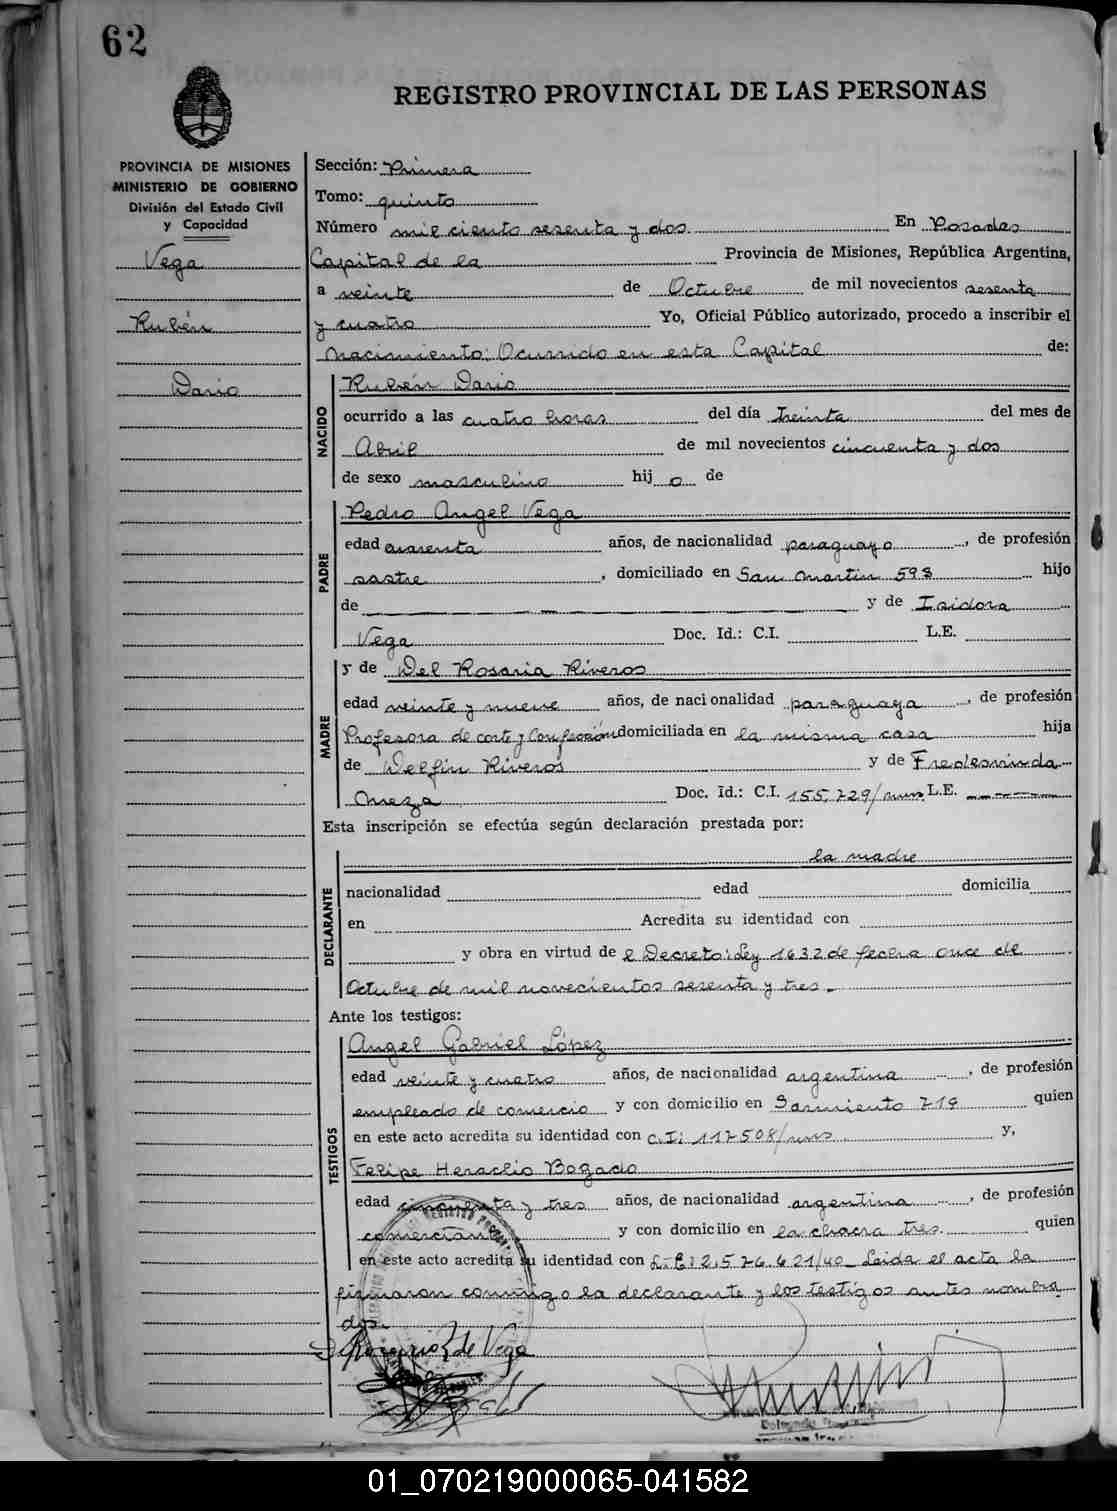 62
REGISTRO PROVINCIAL DE LAS PERSONAS
PROVINCIA DE MISIONES
MINISTERIO DE GOBIERNO
División del Estado Civil
y Capacidad
Vega
Rubén
Dario
Sección: Primera
Tomo: quinto
Número mil ciento sesenta y dos. En Posadas
Capital de la Provincia de Misiones, República Argentina,
a veinte de Octubre de mil novecientos sesenta
y cuatro Yo, Oficial Público autorizado, procedo a inscribir el
nacimiento: Ocurrido en esta Capital de:
NACIDO
Rubén Dario
ocurrido a las cuatro horas del día treinta del mes de
Abril de mil novecientos cincuenta y dos
de sexo masculino hij o de
PADRE
Pedro Angel Vega
edad cuarenta años, de nacionalidad paraguayo, de profesión
sastre, domiciliado en San Martin 593 hijo
de — y de Isidora
Vega Doc. Id.: C.I. L.E.
MADRE
y de Del Rosario Riveros
edad veinte y nueve años, de nacionalidad paraguaya, de profesión
Profesora de corte y Confección domiciliada en la misma casa hija
de Delfin Riveros y de Fredesminda
Meza Doc. Id.: C.I. 155.729/mns L.E. ------
Esta inscripción se efectúa según declaración prestada por:
DECLARANTE
la madre
nacionalidad edad domicilia
en Acredita su identidad con
y obra en virtud de l Decreto: Ley 1632 de fecha once de
Octubre de mil novecientos sesenta y tres.-
Ante los testigos:
TESTIGOS
Angel Gabriel López
edad veinte y cuatro años, de nacionalidad argentina, de profesión
empleado de comercio y con domicilio en Sarmiento 719 quien
en este acto acredita su identidad con C.I: 117508/mns y,
Felipe Heraclio Bogado
edad cincuenta y tres años, de nacionalidad argentina, de profesión
comerciante y con domicilio en la chacra tres. quien
en este acto acredita su identidad con L.E: 2.576.621/40_ Leida el acta la
firmaron conmigo la declarante y los testigos antes nombra
dos.-
Rosario R de Vega
01_070219000065-041582